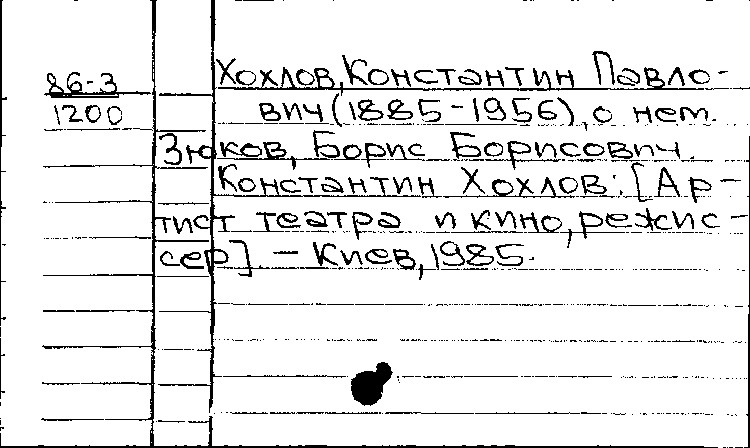 86-3
1200
Хохлов, Константин Павло-
вич (1885-1956), о нем.
Зюков, Борис Борисович.
Константин Хохлов: [Ар-
тист театра и кино, режис-
сер]. - Киев, 1985.